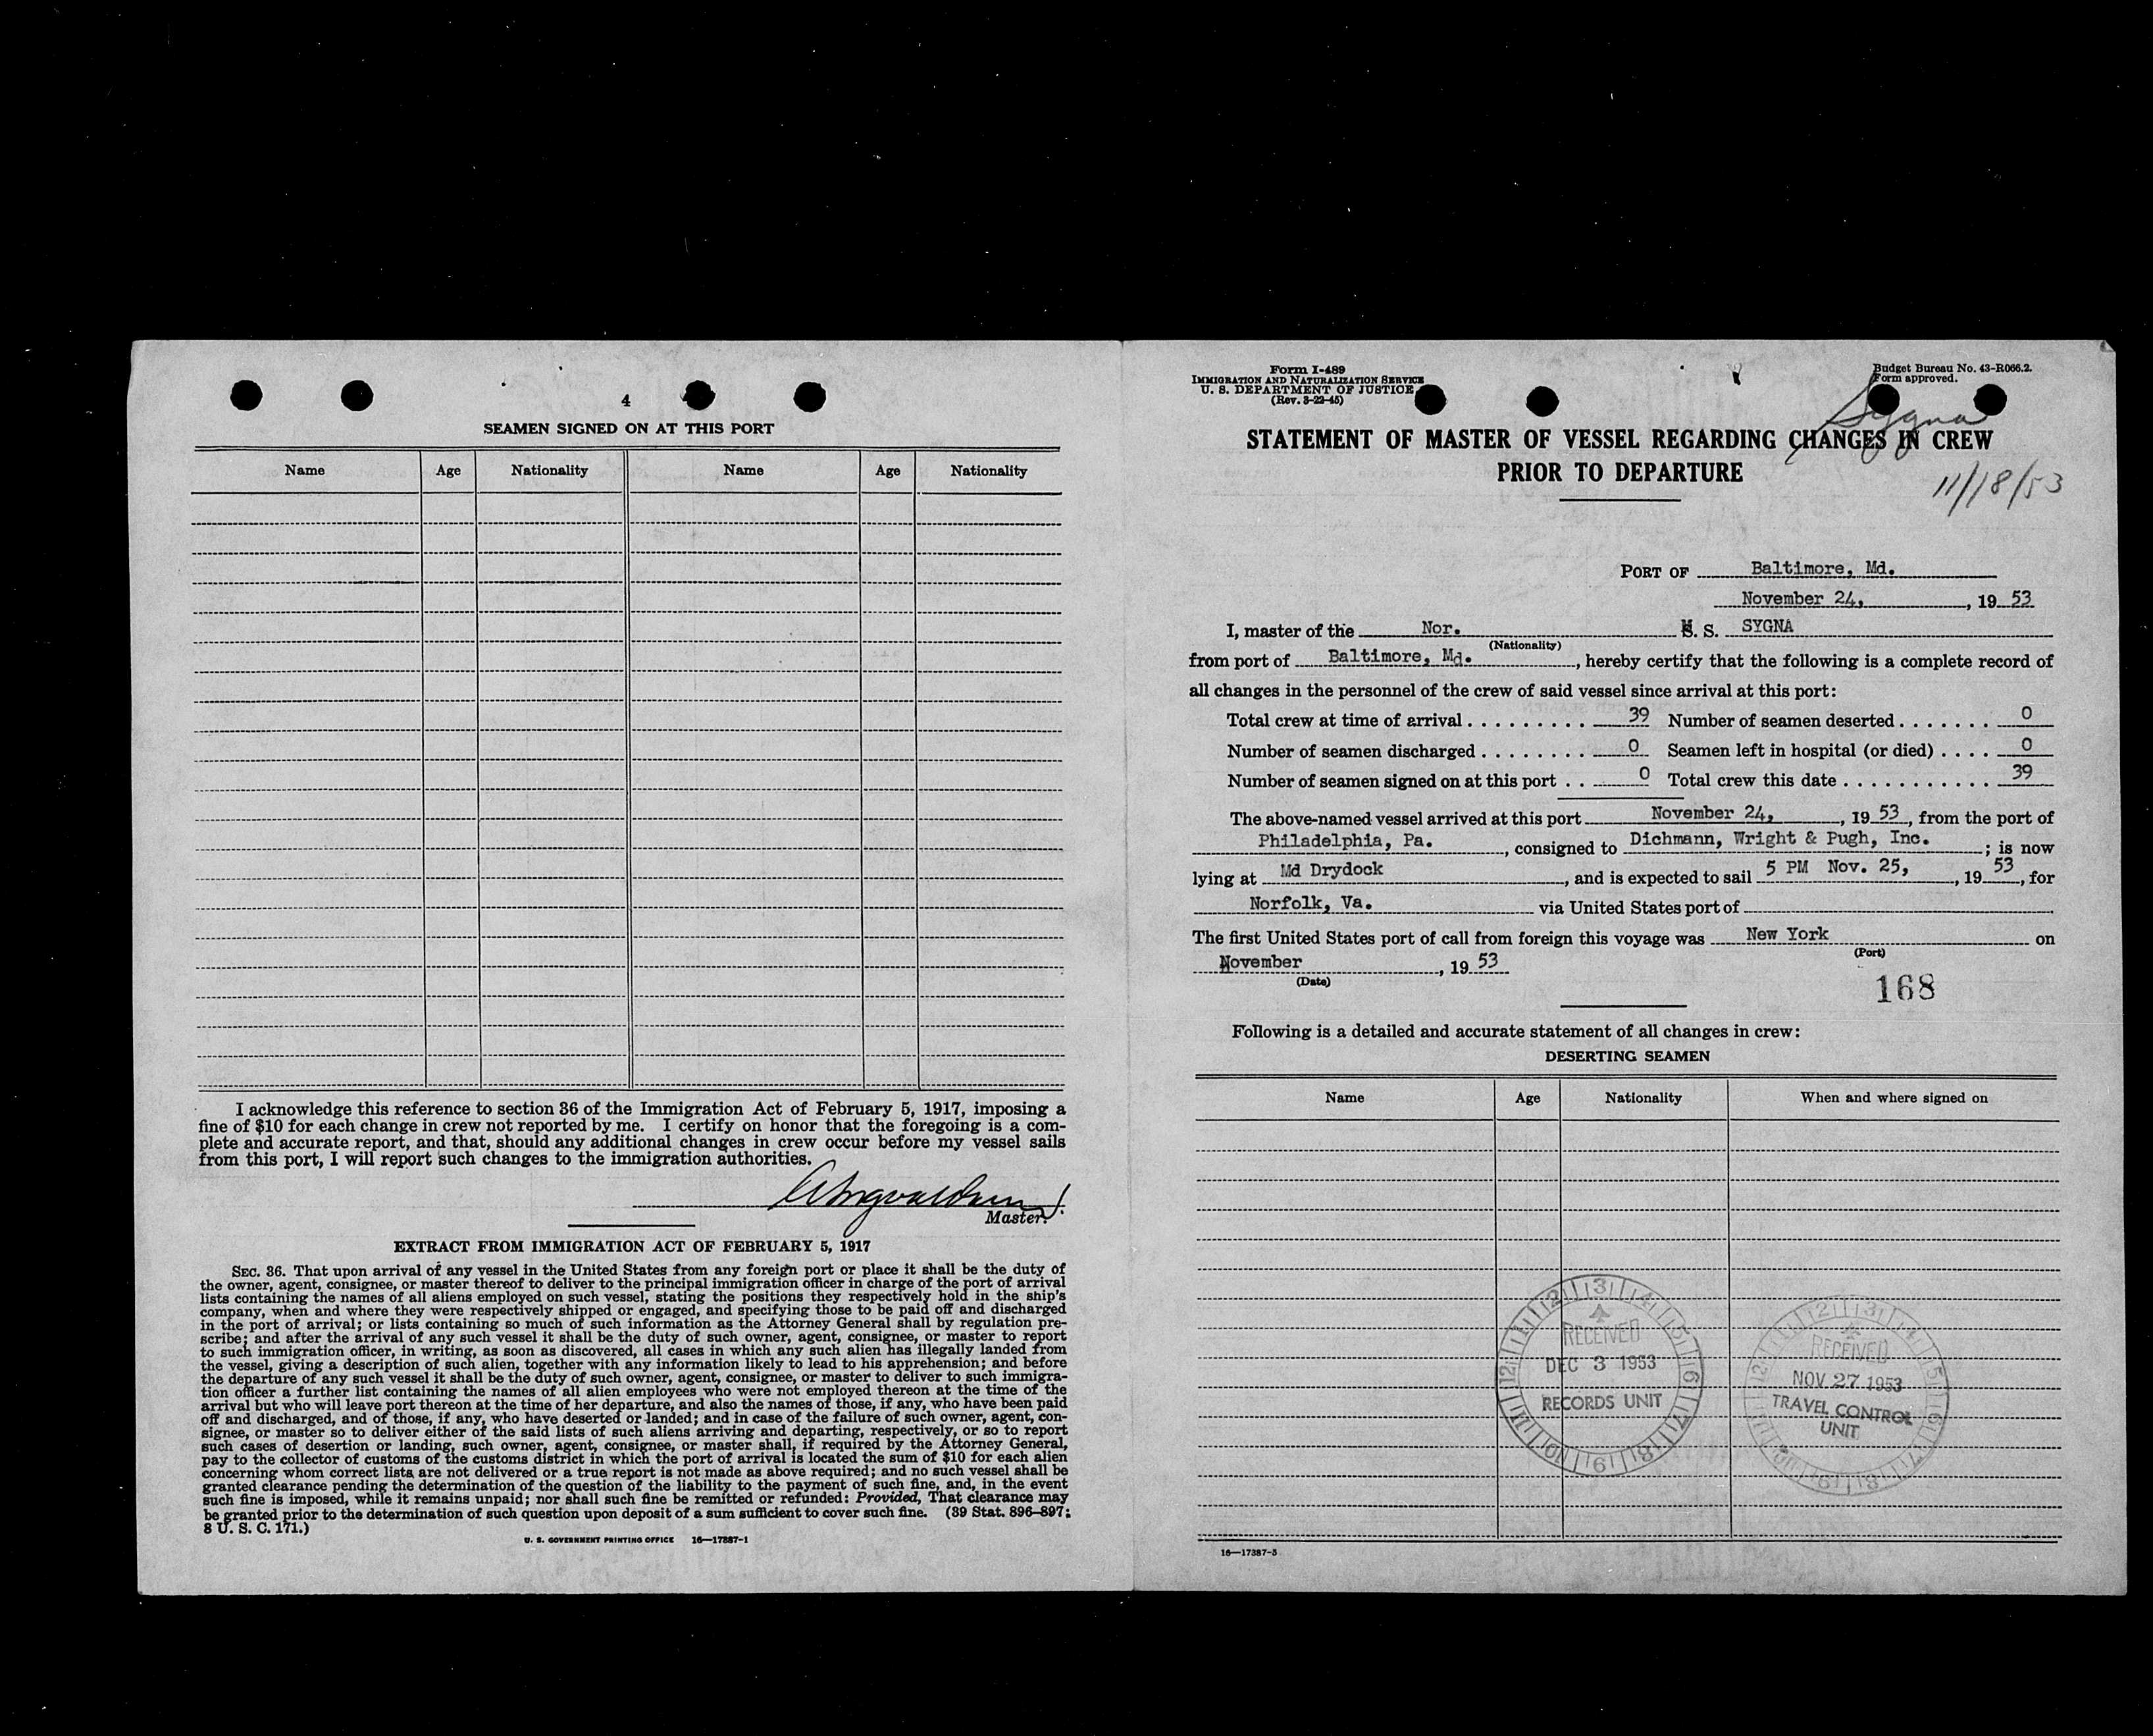 4
SEAMEN SIGNED ON AT THIS PORT
Name Age Nationality Name Age Nationality
I acknowledge this reference to section 36 of the Immigration Act of February 5, 1917, imposing a
fine of $10 for each change in crew not reported by me. I certify on honor that the foregoing is a com-
plete and accurate report, and that, should any additional changes in crew occur before my vessel sails
from this port, I will report such changes to the immigration authorities.
Master.
EXTRACT FROM IMMIGRATION ACT OF FEBRUARY 5, 1917
SEC. 36. That upon arrival of any vessel in the United States from any foreign port or place it shall be the duty of
the owner, agent, consignee, or master thereof to deliver to the principal immigration officer in charge of the port of arrival
lists containing the names of all aliens employed on such vessel, stating the positions they respectively hold in the ship's
company, when and where they were respectively shipped or engaged, and specifying those to be paid off and discharged
in the port of arrival; or lists containing so much of such information as the Attorney General shall by regulation pre-
scribe; and after the arrival of any such vessel it shall be the duty of such owner, agent, consignee, or master to report
to such immigration officer, in writing, as soon as discovered, all cases in which any such alien has illegally landed from
the vessel, giving a description of such alien, together with any information likely to lead to his apprehension; and before
the departure of any such vessel it shall be the duty of such owner, agent, consignee, or master to deliver to such immigra-
tion officer a further list containing the names of all alien employees who were not employed thereon at the time of the
arrival but who will leave port thereon at the time of her departure, and also the names of those, if any, who have been paid
off and discharged, and of those, if any, who have deserted or landed; and in case of the failure of such owner, agent, con-
signee, or master so to deliver either of the said lists of such aliens arriving and departing, respectively, or so to report
such cases of desertion or landing, such owner, agent, consignee, or master shall, if required by the Attorney General,
pay to the collector of customs of the customs district in which the port of arrival is located the sum of $10 for each alien
concerning whom correct lists are not delivered or a true report is not made as above required; and no such vessel shall be
granted clearance pending the determination of the question of the liability to the payment of such fine, and, in the event
such fine is imposed, while it remains unpaid; nor shall such fine be remitted or refunded: Provided, That clearance may
be granted prior to the determination of such question upon deposit of a sum sufficient to cover such fine. (39 Stat. 896–897;
8 U. S. C. 171.)
U. S. GOVERNMENT PRINTING OFFICE 16—17387-1
Form I-489
IMMIGRATION AND NATURALIZATION SERVICE
U. S. DEPARTMENT OF JUSTICE
(Rev. 3-22-45)
Budget Bureau No. 43-R066.2.
Form approved.
Sygna
STATEMENT OF MASTER OF VESSEL REGARDING CHANGES IN CREW
PRIOR TO DEPARTURE
11/18/53
PORT OF Baltimore, Md.
November 24, , 19 53
I, master of the Nor. M. S. SYGNA
(Nationality)
from port of Baltimore, Md. , hereby certify that the following is a complete record of
all changes in the personnel of the crew of said vessel since arrival at this port:
Total crew at time of arrival . . . . . . . . . 39 Number of seamen deserted . . . . . . . 0
Number of seamen discharged . . . . . . . . 0 Seamen left in hospital (or died) . . . . 0
Number of seamen signed on at this port . . 0 Total crew this date . . . . . . . . . . . . 39
The above-named vessel arrived at this port November 24, , 19 53 , from the port of
Philadelphia, Pa. , consigned to Dichmann, Wright & Pugh, Inc. ; is now
lying at Md Drydock , and is expected to sail 5 PM Nov. 25, , 19 53 , for
Norfolk, Va. via United States port of
The first United States port of call from foreign this voyage was New York on
(Port)
November , 19 53
(Date)
168
Following is a detailed and accurate statement of all changes in crew:
DESERTING SEAMEN
Name Age Nationality When and where signed on
RECEIVED
DEC 3 1953
RECORDS UNIT
RECEIVED
NOV 27 1953
TRAVEL CONTROL
UNIT
16—17387-5